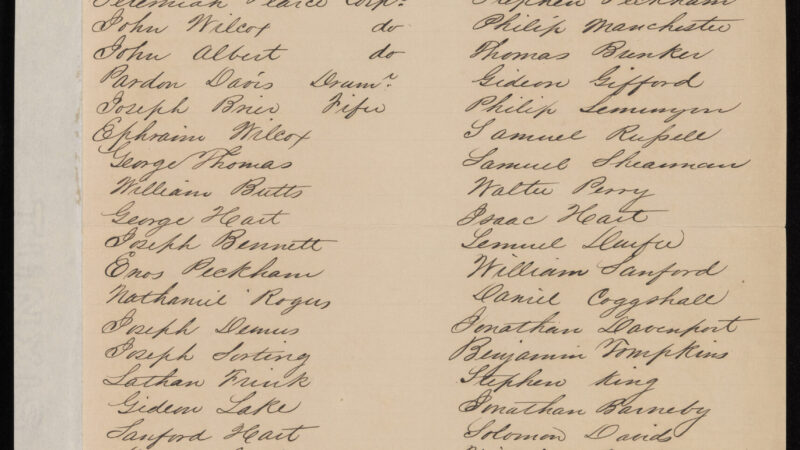 Jeremiah Pearce Corpl. Stephen Peckham
John Wilcox do Philip Manchester
John Albert do Thomas Bunker
Pardon Davis Drumr. Gideon Gifford
Joseph Brier Fifer Philip
Ephraim Wilcox Samuel Russell
George Thomas Samuel Shearman
William Butts Walter Perry
George Hart Isaac Hart
Joseph Bennett Lemuel
Enos Peckham William Sanford
Nathaniel Rogers Daniel Coggshall
Joseph Demus Jonathan Davenport
Joseph Benjamin Tompkins
Lathan Frink Stephen King
Gideon Lake Jonathan Barneby
Sanford Hart Solomon Davids